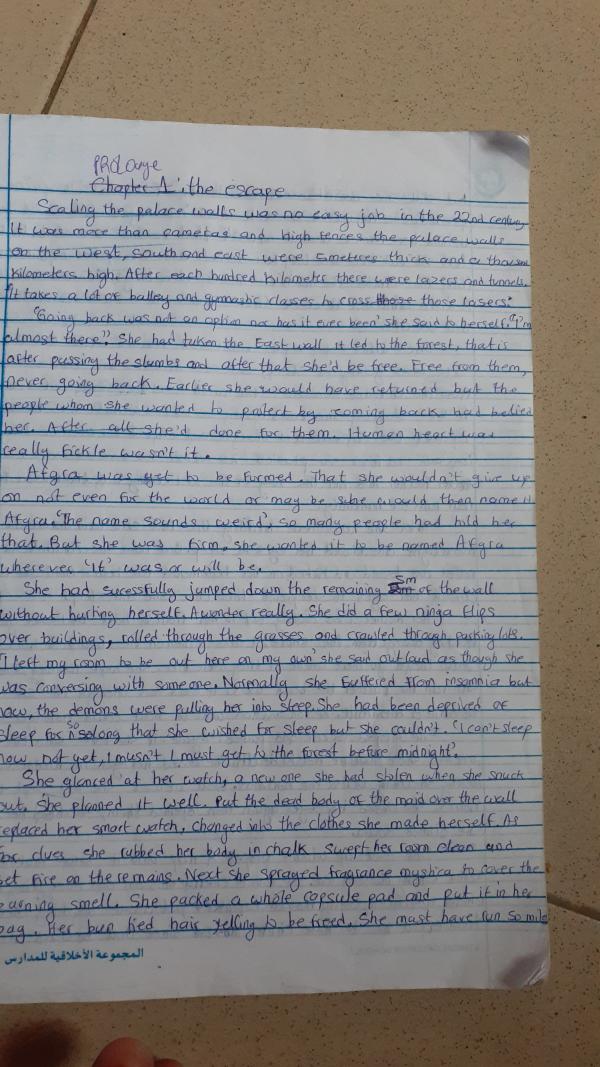 PROLOuge
Chapter 1: the escape
Scaling the palace walls was no easy job in the 22nd century
It was more than cameras and high fences the palace walls
on the west, south and east were 5metres thick and a thousand
kilometers high. After each hundred kilometer there were lazers and tunnels.
It takes a lot of balley and gymnastic classes to cross those those lasers.
'Going back was not an option nor has it ever been' she said to herself. "I'm
almost there". She had taken the East wall it led to the forest, that is
after passing the slumbs and after that she'd be free. Free from them,
never going back. Earlier she would have returned but the
people whom she wanted to protect by coming back had
her. After all she'd done for them. Human heart was
really fickle wasn't it.
Afgra was yet to be formed. That she wouldn't give up
on not even for the world or may be she would then name it
Afgra. 'The name sounds weird', so many people had told her
that. But she was firm. she wanted it to be named Afgra
wherever 'It' was or will be.
She had sucessfully jumped down the remaining 5m of the wall
without hurting herself. A wonder really. She did a few ninja flips
over buildings, rolled through the grasses and crawled through parking lots.
'I left my room to be out here on my own' she said outloud as though she
was conversing with someone. Normally she suffered from insomnia but
now, the demons were pulling her into sleep. She had been deprived of
sleep for so long that she wished for sleep but she couldn't. 'I can't sleep
now not yet, I musn't I must get to the forest before midnight'.
She glanced at her watch, a new one she had stolen when she snuck
out, She planned it well. Put the dead body of the maid over the wall
replaced her smart watch, changed into the clothes she made herself. As
for clues she rubbed her body in chalk swept her room clean and
set fire on the remains. Next she sprayed fragrance mystica to cover the
burning smell. She packed a whole capsule pad and put it in her
bag. Her bun tied hair yelling to be freed. She must have run so mile
المجموعة الأخلاقية للمدارس